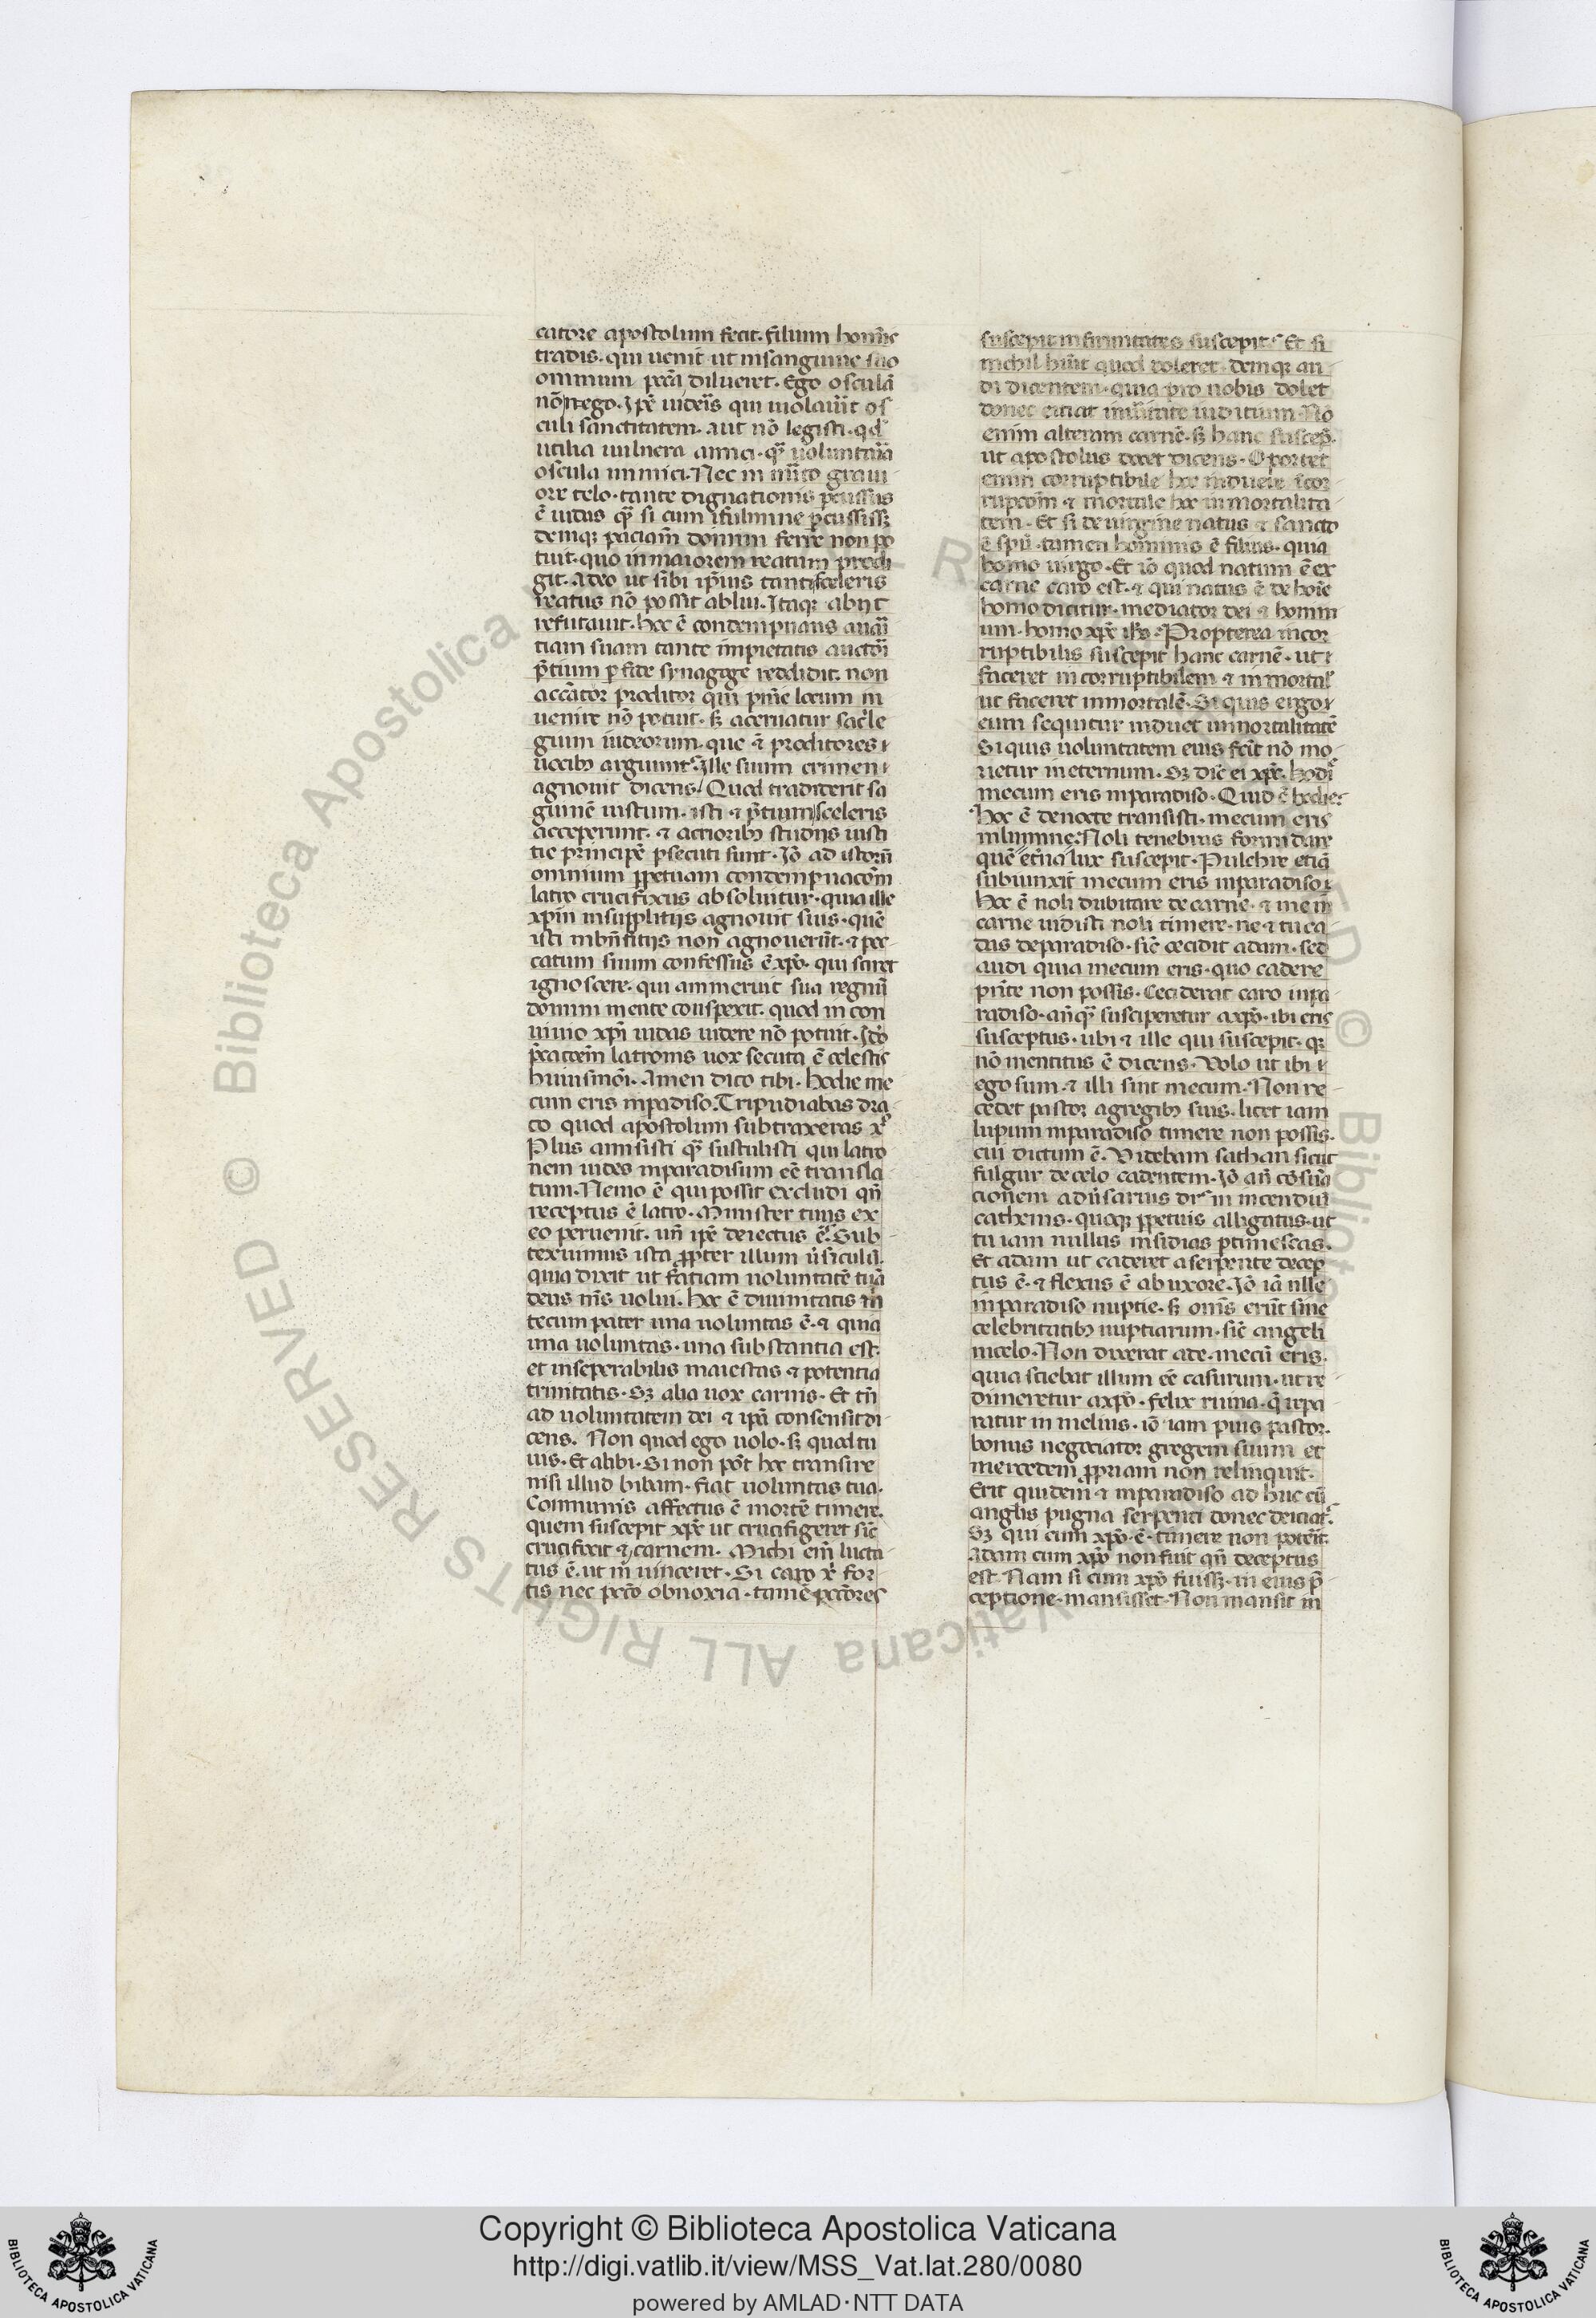 catore apostolum fecit. filium hoı̄ıs
tradis. qui uenit ut in sanguine suo
omnium pccā dilueret. Ego osculā
nō nego. Ip̄e uideris qui uiolauit os
culi sanctitatem. aut nō legisti. qđ
utilia uulnera amici. q̄ȝ uoluntaria
oscula inimici. Nec in merito graui
ore telo. tante dignationis ꝑcussus
ē iudas q̄ȝ si cum fulmine ꝑcussissȝ
deniqȝ paciam domini ferre non po
tuit. quo in maiorem reatum prodi
git. Adeo ut sibi ipsius tanti sceleris
reatus nō possit ablui. Itaqȝ abijt
refutauit. hoc ē contempnans auari
tiam suam tante impietatis auctori
p̄tium ꝑfide synagoge reddidit. non
accātor proditor qui p̄me locum in
uenire nō potuit. sȝ aceruatur sacrile
gium iudeorum. que ⁊ proditores
uocibȝ arguunt. Ille suum crimen
agnouit dicens. Quod tradiderit sa
guinē iustum. isti ⁊ p̄tium sceleris
acceperunt. ⁊ actioribȝ studijs iusti
tie principē ꝑsecuti sunt. Iō ad istorū
omnium ꝑpetuam contempnacōm
latro crucifixus absoluitur. quia ille
xp̄m in supplitijs agnouit suis. quē
isti in bn̄fitijs non agnouerūt. ⁊ pec
catum suum confessus ē xp̄o. qui sciret
ignoscere. qui ammeruit sua regnū
domini mente conspexit. quod in con
uiuio xp̄i iudas uidere nō potuit. Idō
p̄cacōem latronis uox secuta ē celestis
huiusmōi. Amen dico tibi. hodie me
cum eris in padiso. Tripudiabas dra
co quod apostolum subtraxeras x̄
Plus amisisti q̄ȝ sustulisti qui latro
nem uides in paradisum eē transla
tum. Nemo ē qui possit excludi qn̄
receptus ē latro. Minister tuus ex
eo peruenit. un̄ ip̄e deiectus ē. Sub
texuimus ista ꝓpter illum ūsiculū.
quia dixit ut faciam uoluntatē tuā
deus ms̄ uolui. hoc ē diuinitatis m̄
tecum pater una uoluntas ē. ⁊ quia
una uoluntas. una substantia est.
et inseperabilis maiestas ⁊ potentia
trinitatis. Sȝ alia uox carnis. Et tn̄
ad uoluntatem dei ⁊ ip̄a consensit di
cens. Non quod ego uolo. sȝ quod tu
uis. Et alibi. Si non pōt hoc transire
nisi illud bibam. fiat uoluntas tua.
Communis affectus ē mortē timere.
quem suscepit xp̄c ut crucifigeret sic̄
crucifixit ⁊ carnem. Michi em̄ lucta
tus ē. ut m̄ uinceret. Si caro x̄ for
tis nec pccō obnoxia. tamē pccōres
suscepit infirmitates suscepit. Et si
nichil hūit quod doleret. deniqȝ au
di dicentem. quia pro nobis dolet
donec eiciat in uirtute iuditium. Nō
enim alteram carnē. sȝ hanc suscep̄.
ut apostolus docet dicens. Oportet
enim corruptibile hoc induere icor
rupcōm ⁊ mortale hoc inmortalita
tem. Et si de uirgine natus ⁊ sancto
ē spū. tamen hominis ē filius. quia
homo uirgo. Et iō quod natum ē ex
carne caro est. ⁊ qui natus ē de hoīe
homo dicitur. mediator dei ⁊ homin
um. homo xp̄c ihs̄. Propterea incor
ruptibilis suscepit hanc carnē. ut
faceret incorruptibilem ⁊ inmortal'
ut faceret inmortalē. Si quis ergo
eum sequitur induet inmortalitatē
Si quis uoluntatem eius fecit nō mo
rietur in eternum. Sȝ dic̄ ei xp̄c. hodie
mecum eris in paradiso. Quid ē hodie.
hoc ē de nocte transisti. mecum eris
in lumine. Noli tenebras formidare
quē et̄na lux suscepit. Pulchre etiā
subiunxit mecum eris in paradiso.
hoc ē noli dubitare de carne. ⁊ me in
carne uidisti noli timere. ne ⁊ tu ca
das de paradiso. sic̄ cecidit adam. sed
audi quia mecum eris. quo cadere
p̄nte non possis. Ceciderat caro in pa
radiso. an̄q̄ȝ susciperetur a xp̄o. ibi eris
susceptus. ubi ⁊ ille qui suscepit. qȝ
nō mentitus ē dicens. Volo ut ibi
ego sum. ⁊ illi sint mecum. Non re
cedet pastor a gregibȝ suis. licet iam
lupum in paradiso timere non possis.
cui dictum ē. Videbam sathan sicut
fulgur de celo cadentem. Iō an̄ cōsua
cionem adūsarius dr̄ in incendiū
cathenis. quoqȝ ꝑpetuis alligatus. ut
tu iam nullas insidias ꝑtimescas.
Et adam ut caderet a serpente decep
tus ē. ⁊ flexus ē ab uxore. Iō iā nlle
in paradiso nuptie. sȝ om̄s erūt sine
celebritatibȝ nuptiarum. sic̄ angeli
in celo. Non dixerat ade. mecū eris.
quia sciebat illum eē casurum. ut re
dimeretur a xp̄o. felix ruina. q̄ repa
ratur in melius. iō iam pius pastor.
bonus negociator gregem suum et
mercedem ꝓpriam non relinquit.
Erit quidem ⁊ in paradiso ad huc cū
anglis pugna serpenti donec deiciat.
Sȝ qui cum xp̄o. ē. timere non poterit.
Adam cum xp̄o non fuit qn̄ deceptus
est. Nam si cum xp̄o fuissȝ. in eius p̄
ceptione. mansisset. Non mansit in
Copyright © Biblioteca Apostolica Vaticana
http://digi.vatlib.it/view/MSS_Vat.lat.280/0080
powered by AMLAD·NTT DATA
BIBLIOTECA APOSTOLICA VATICANA
BIBLIOTECA APOSTOLICA VATICANA
© Biblioteca Apostolica Vaticana ALL RIGHTS RESERVED